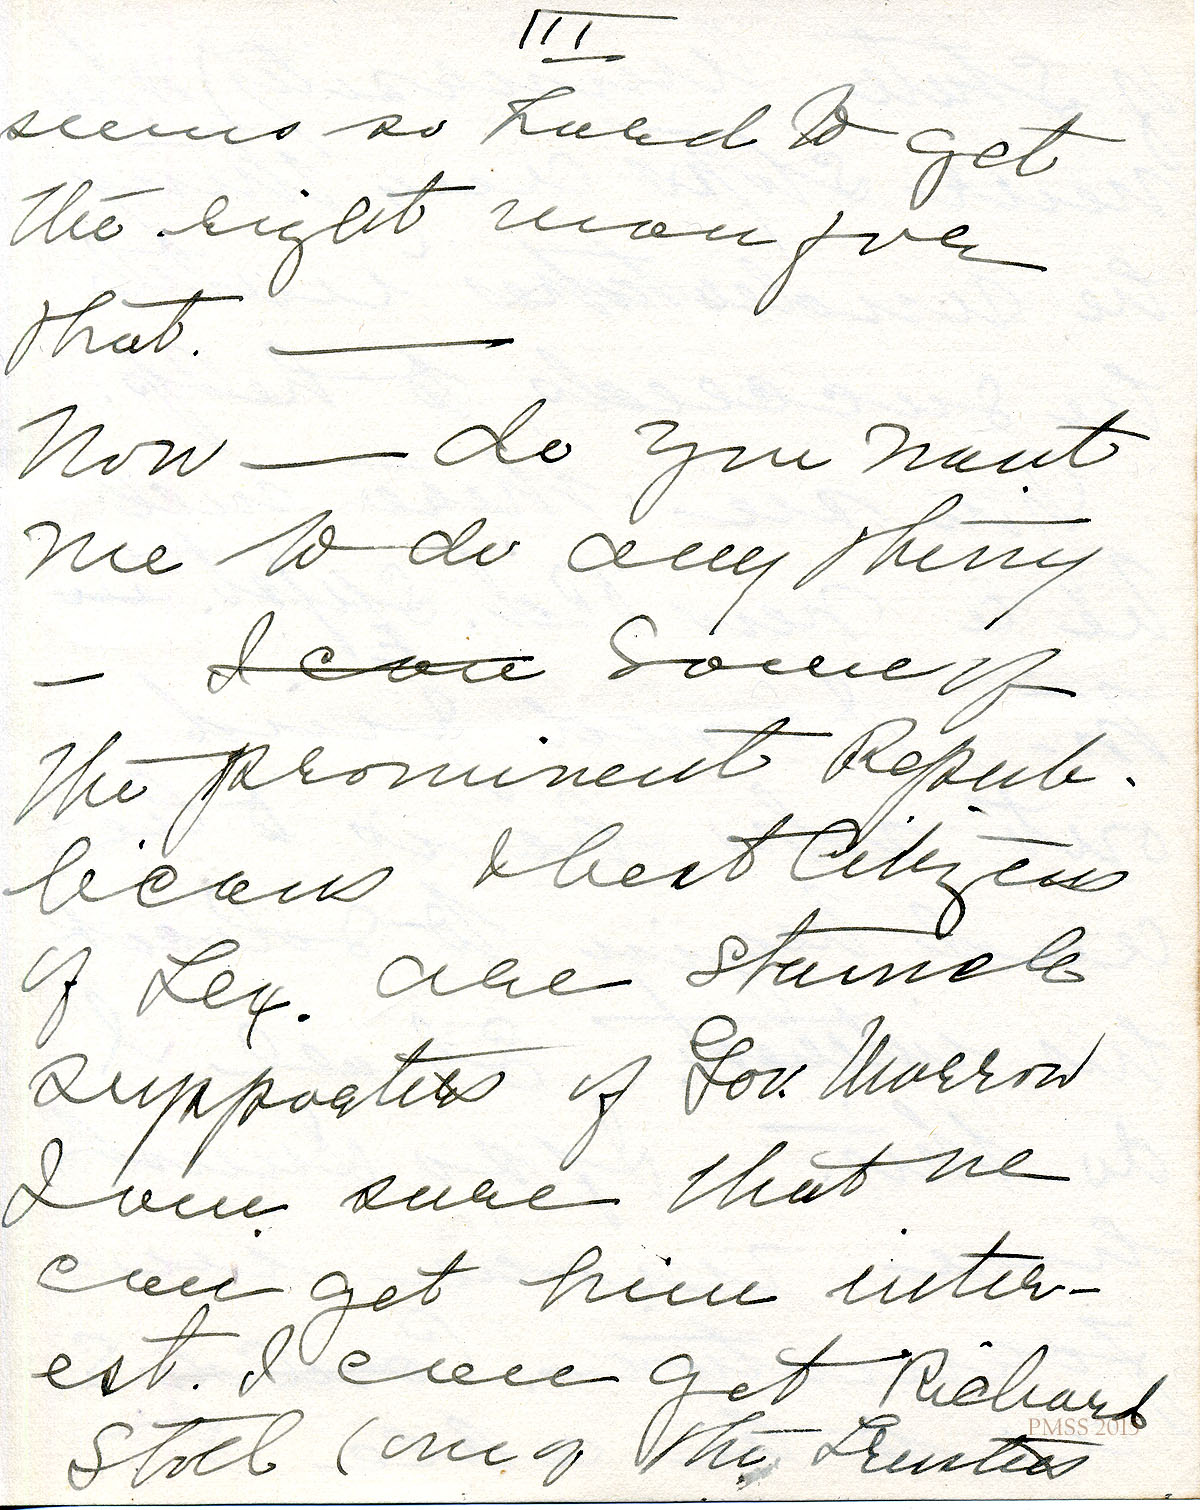 III
seems so hard to get
the right man for
that. —
Now — do you want
me to do any thing
— I can Some of
the prominent Repub-
licans & best Citizens
of Lex. are staunch
supporters of Gov. Morrow
I am sure that we
can get him inter-
est. I can get Richard
Stoll (one of the Trustees
PMSS 2019